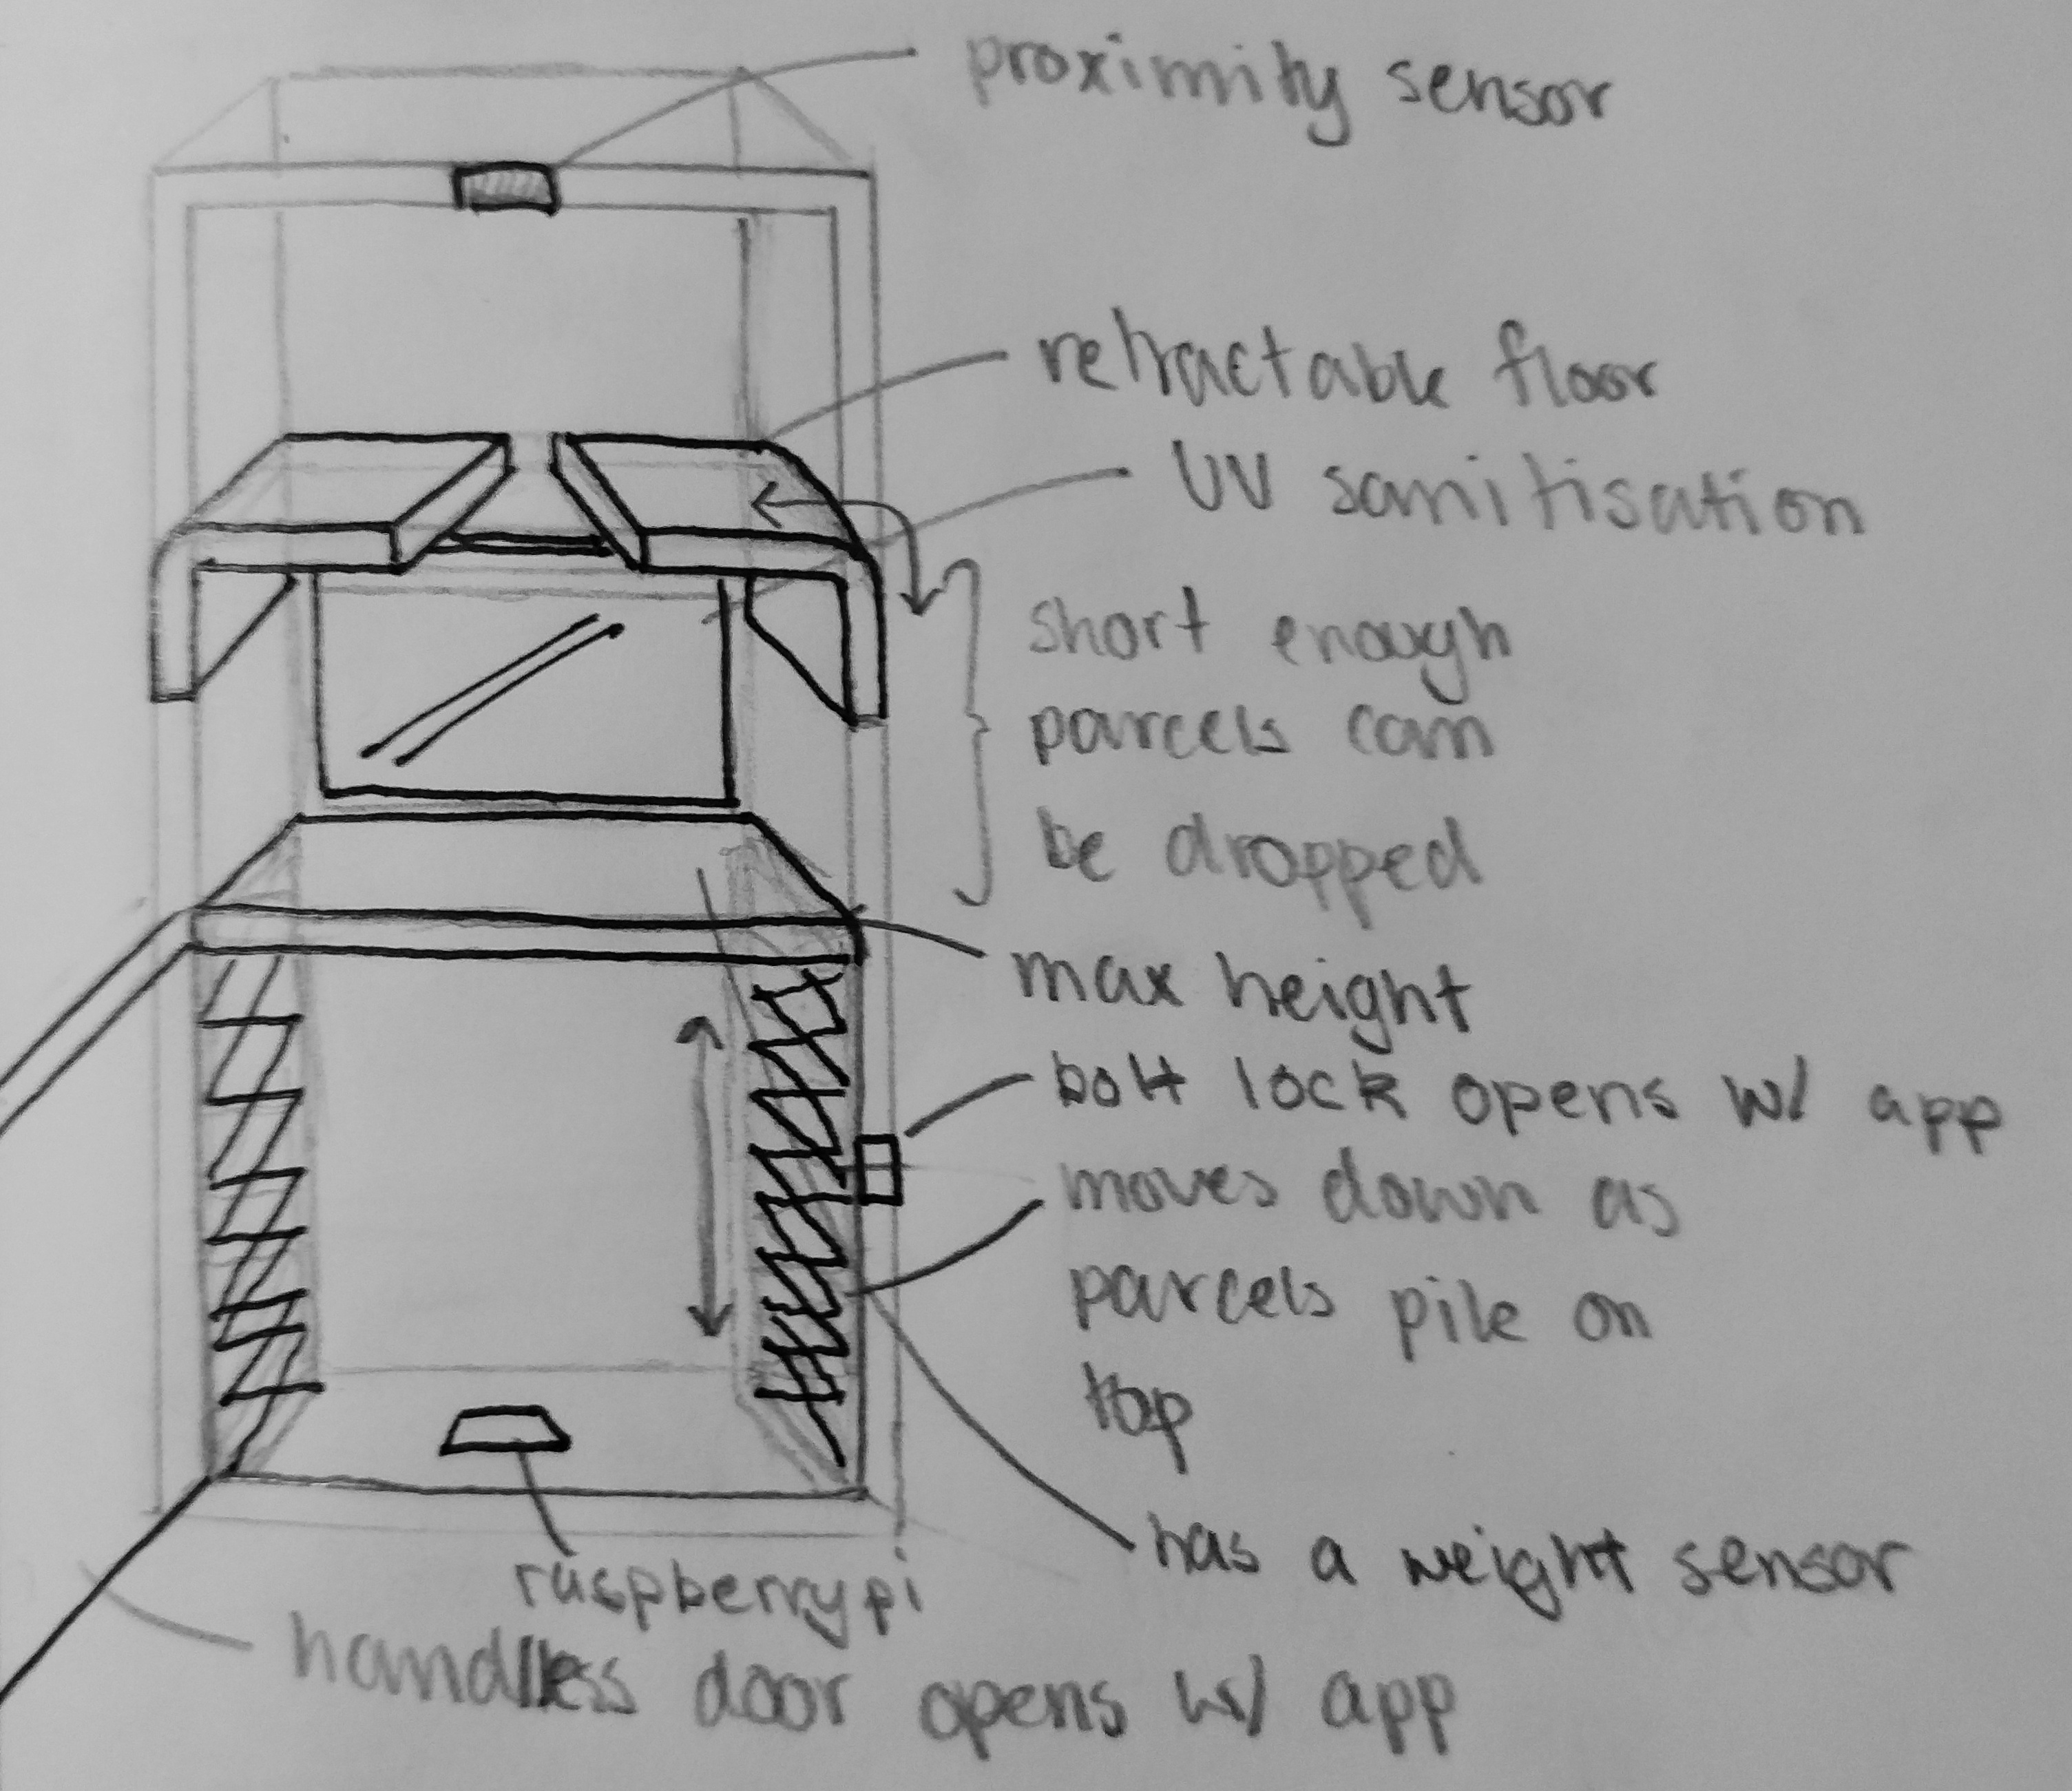 proximity sensor
retractable floor
UV sanitisation
short enough
parcels can
be dropped
max height
bolt lock opens w/ app
moves down as
parcels pile on
top
has a weight sensor
raspberry pi
handlless door opens w/ app